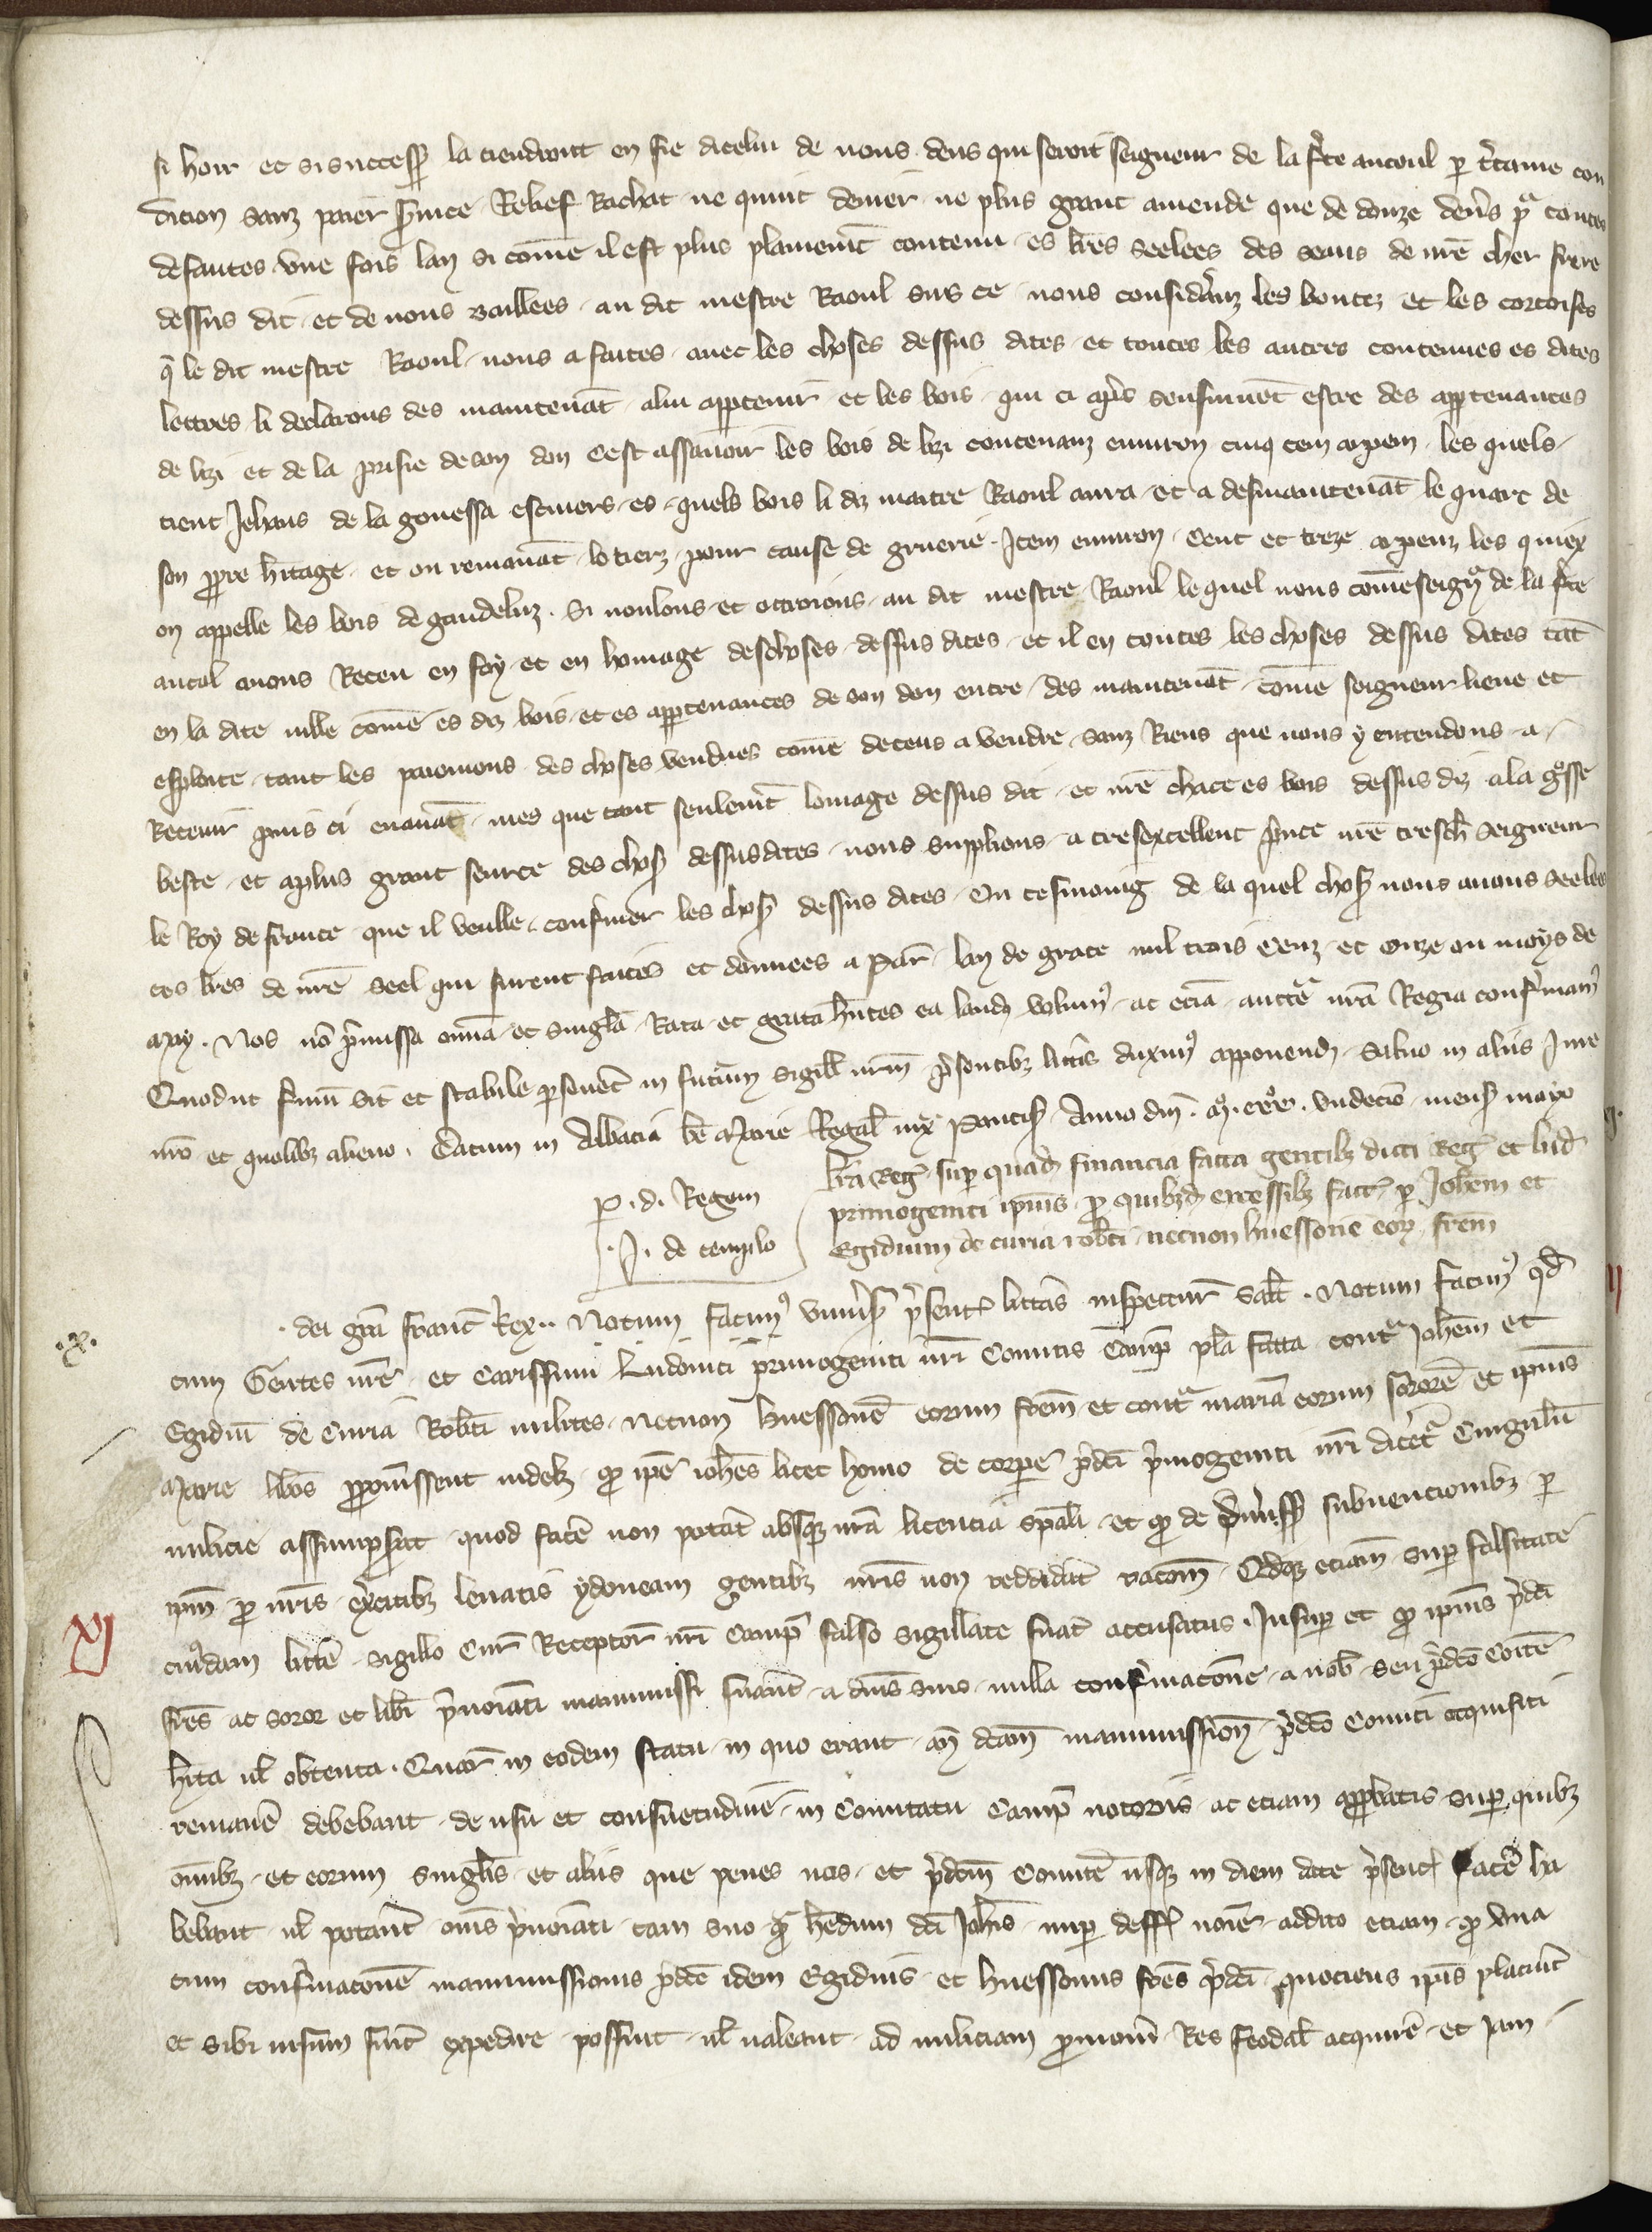 si hoir et si success la tiendront en fie dicelui de nous deus qui seroit seigneur de la fte aucoul p tele con
dicion sanz paier suice Relief Rachat ne quint denier ne plus grant amende que de douze den's pr toutes
defautes une fois lan si come il est plus plainemt contenu es lres seelees des seaus de nre cher frere
dessus dit et de nous baillees au dit mestre Raoul sus ce nous considanz les bontez et les cortoises
q le dit mestre Raoul nous a faites auec les choses dessus dites et toutes les autres contenues es dites
lettres li declarons des maintenat a lui appteuir et les bois qui ci apres sensiuuet estre des apptenances
de lizi et de la prisie de son don Cest assauoir les bois de lizi contenanz enuiron cinq cenz arpenz les quels
tient Jehans de la gouessa escuiers es quels bois li diz maitre Raoul aura et a desmaintenat le quart de
son ppre hitage et ou remanat lo tierz pour cause de gruerie Item enuiron Cent et treze arpenz les quiex
on appelle les bois de gandeluz Si uoulons et ottroions au dit mestre Raoul le quel nous come seignr de la fte
aucol auons Receu en foy et en homage des choses dessus dites et il en toutes les choses dessus dites tat
en la dite uille come es diz bois et es apptenances de son don entre des maintenat come seigneur liene et
esploite tant les paiemons des choses uendues come de ceus a uendre sanz Riens que nous y entendons a
Retenir puis ci enauat mes que tant seulemt lomage dessus dit et nre chace es bois dessus diz a la gsse
beste et a plus grant seurte des choses dessus dites nous supplions a tresexcellent pnce nre tresch seigneur
le Roy de france que il veulle confmer les choses dessus dites En tesmoing de la quel chose nous auons seelees
ces lres de nre seel qui furent faites et donnees a Par lan de grace mil trois Cenz et onze ou moys de
may. Nos uo pmissa omia et singla Rata et grata hntes ea laud volum ac ecia auctte nra Regia confmam
Quod ut firmu sit et stabile pseueret in futurum sigill nrm psentibz littis duxim apponend Saluo in aliis Jure
nro et quolibz alieno. Datum in Abbacia be Marie Regal iux Pontis Anno dni .m. ccc. undecio mens mayo
p .d. Regem
.J. de templo
lra Reg sup quad financia facta gentibz dicti Reg et lud
primogeniti ipius p quibzd excessibz fact p Johem et
Egidium de curia robti necnon huessone eor frem
. dei gra franc Rex. Notum facim uniusis psentes littas inspecturis Salt. Notum facim qd
cum Gentes nre et Carissimi Ludouici primogeniti nri Comitis Camp pla facta contra Johem et
Egidiu de Curia Robti milites necnon huessone eorum frem et contra maria eorum sorore et ipius
Marie libos pposuissent uidelz qo ipe iohes licet homo de corpe pdci pmogeniti nri dicetr Cingulu
milicie assumpserat quod face non potat absqz nra licencia spali et qo de diusis subuencionibz p
ipm p nris execitibz leuatis ydoneam gentibz nris non reddidat racom Qdqz eciam sup falsitate
cuidam litte sigillo Cur Receptor nri Camp falso sigillate fuat accusatus. Insup et qo ipius pdci
fres ac soror et libi pnoiati manumissi fuant a dnis suis nulla confmacone a nob seu pdco Coite
hita ul obtenta. Quar in eodem statu in quo erant an dcam manumission pdco Comiti acquisiti
remane debebant de usu et consuetudine in Comitatu Camp notoriis ac eciam approbatis sup quibz
omibz et eorum singlis et aliis que penes nos et pdcm Comite usqz in diem date psent face ha
bebant ul potant omis pnoiati tam suo qo hedum dci Johis nup deff noie addito eciam qo una
cum confmacone manumissionis pdce idem Egidius et huessonus fres pdci quociens ipis placuit
et sibi uisum fuit expedire possint ul ualeant ad miliciam pmoui Res feodal acquire et iam
XI